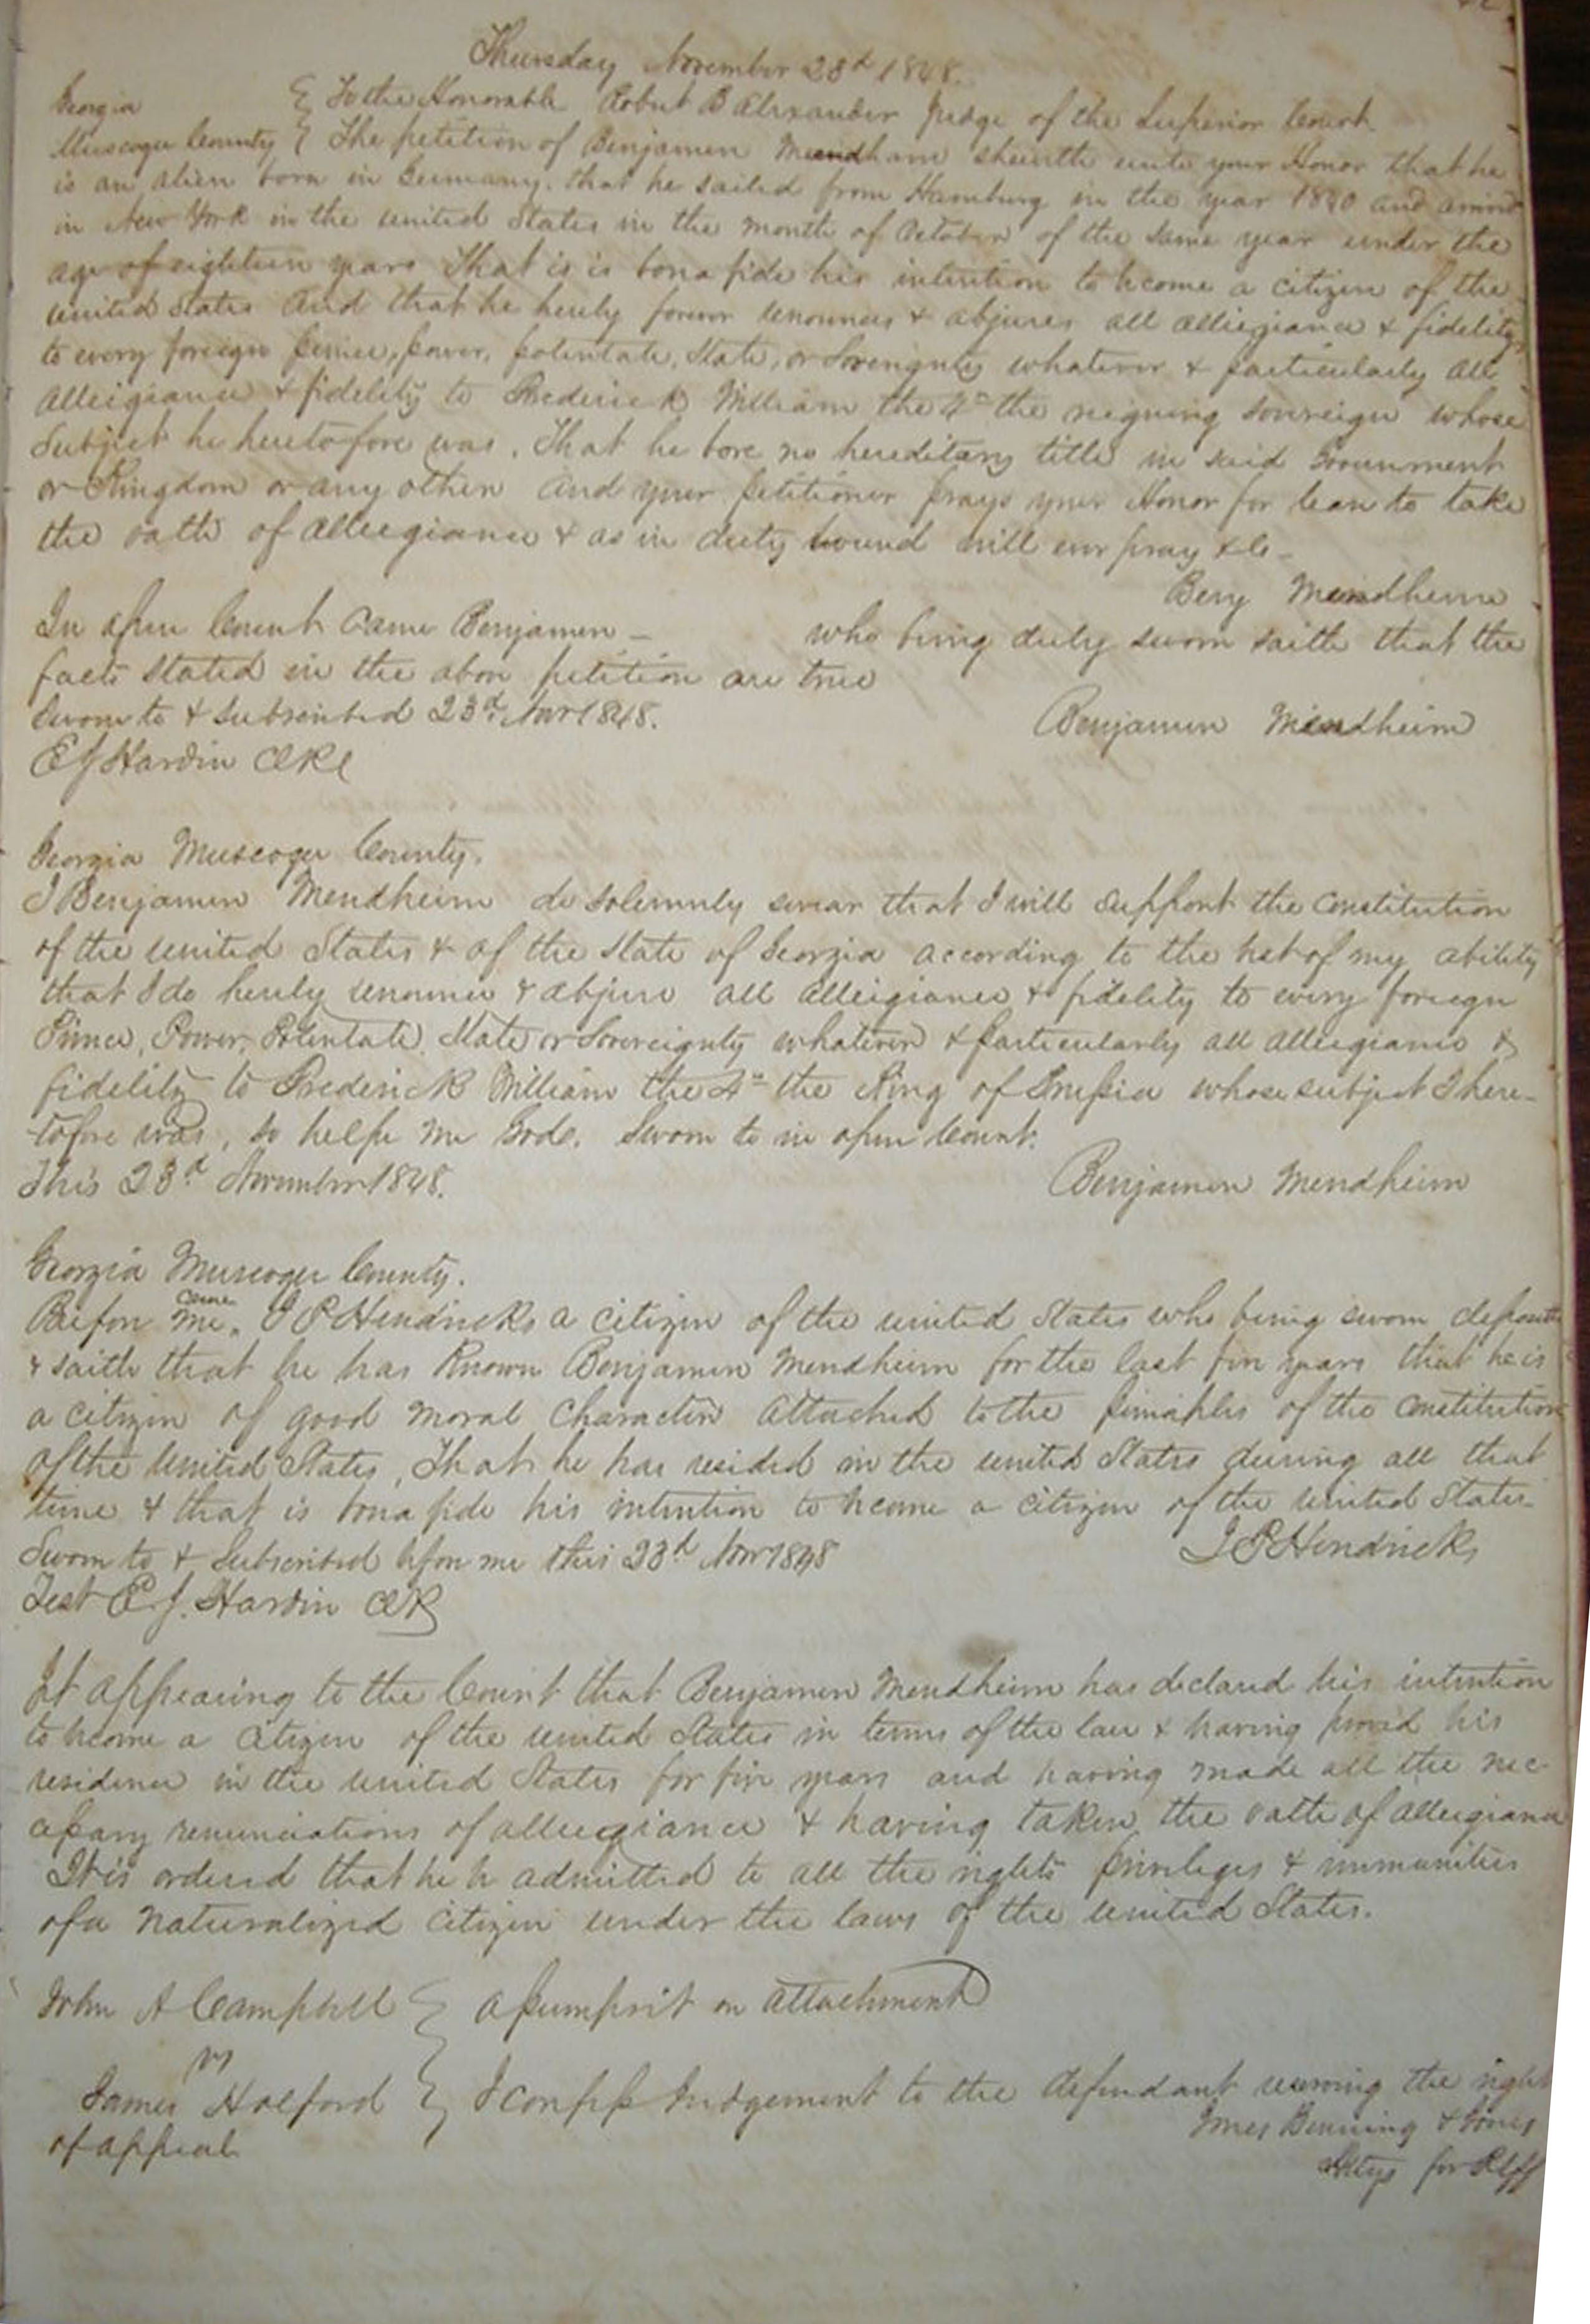 Thursday November 23d 1848.
Georgia } To the Honorable Robert B Alexander Judge of the Superior Court
Muscogee County } The petition of Benjamin Mendheim sheweth unto your Honor that he
is an alien born in Germany. that he sailed from Hamburg in the year 1840 and arrived
in New York in the united States in the month of October of the same year under the
age of eighteen years That is is bona fide his intention to become a citizen of the
united States And that he hereby forever renounces & abjures all allegiance & fidelity
to every foreign prince, power, potentate, State, or Sovereignty whatever & particularly all
allegiance & fidelity to Frederick William the 4th the reigning sovereign whose
Subject he heretofore was. That he bore no hereditary title in said Government
or Kingdom or any other And your petitioner prays your Honor for leave to take
the oath of allegiance & as in duty bound will ever pray &c-
Benj Mendheim
In open Court Came Benjamin - who being duly sworn saith that the
facts stated in the above petition are true
Sworn to & subscribed 23d Nov 1848.
Benjamin Mendheim
E J Hardin Clk
Georgia Muscogee County.
I Benjamin Mendheim do solemnly swear that I will support the constitution
of the united States & of the State of Georgia according to the best of my ability
that I do hereby renounce & abjure all allegiance & fidelity to every foreign
Prince, Power, Potentate, State or Sovereignty whatever & particularly all allegiance &
fidelity to Frederick William the 4th the King of Prussia whose subject I here-
tofore was, so help me God. Sworn to in open Court.
This 23d November 1848.
Benjamin Mendheim
Georgia Muscogee County.
Before me came J P Hendricks a citizen of the united States who being sworn deposeth
& saith that he has Known Benjamin Mendheim for the last five years that he is
a citizen of good moral character attached to the principles of the constitution
of the United States, That he has resided in the united States during all that
time & that is bona fide his intention to become a citizen of the united States
Sworn to & Subscribed before me this 23d Nov 1848
J P Hendricks
Test E. J. Hardin Clk
It appearing to the Court that Benjamin Mendheim has declared his intention
to become a citizen of the united States in terms of the law & having proved his
residence in the united States for five years and having made all the nec-
essary renunciations of allegiance & having taken the oath of allegiance
It is ordered that he be admitted to all the rights privileges & immunities
of a naturalized citizen under the laws of the united States.
John A Campbell } Assumpsit on attachment
vs
James Holford } I confess Judgement to the defendant reserving the right
of appeal
Jones Benning & Jones
Attys for Plff